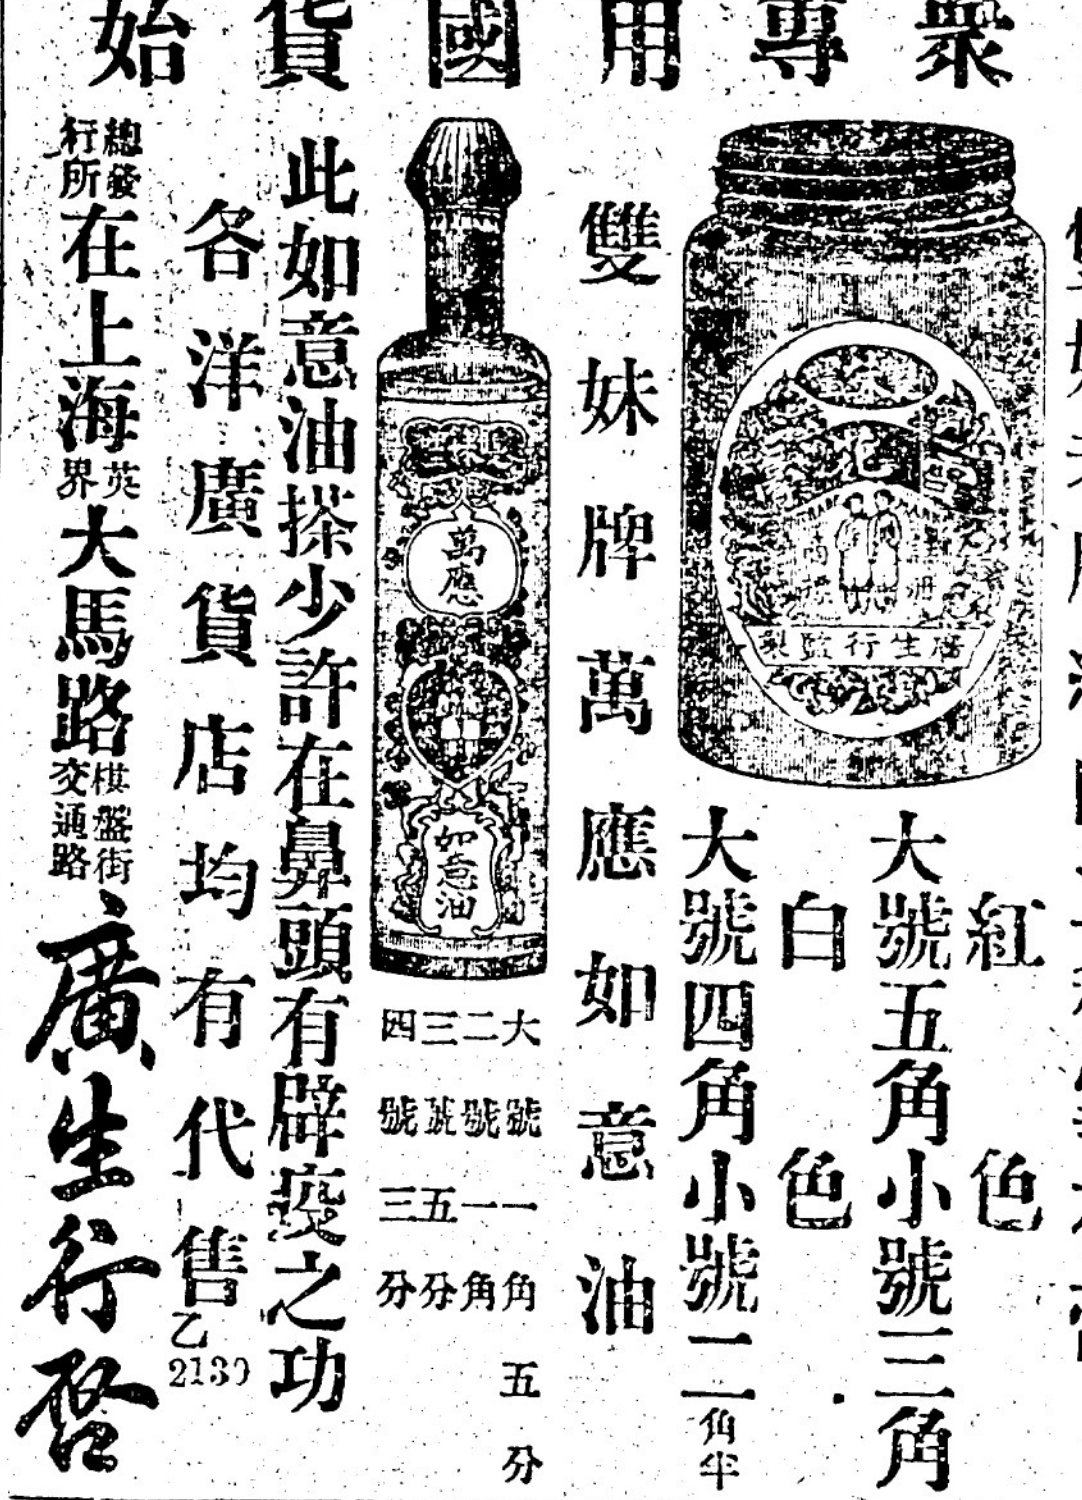 衆專用國貨始
紅色
大號五角小號三角
白色
大號四角小號二角半
雙妹牌萬應如意油
大號一角五分
二號一角
三號五分
四號三分
此如意油搽少許在鼻頭有辟疫之功
各洋廣貨店均有代售乙2139
總發行所在上海英界大馬路棋盤街交通路廣生行啓
廣生行監製
萬應
如意油